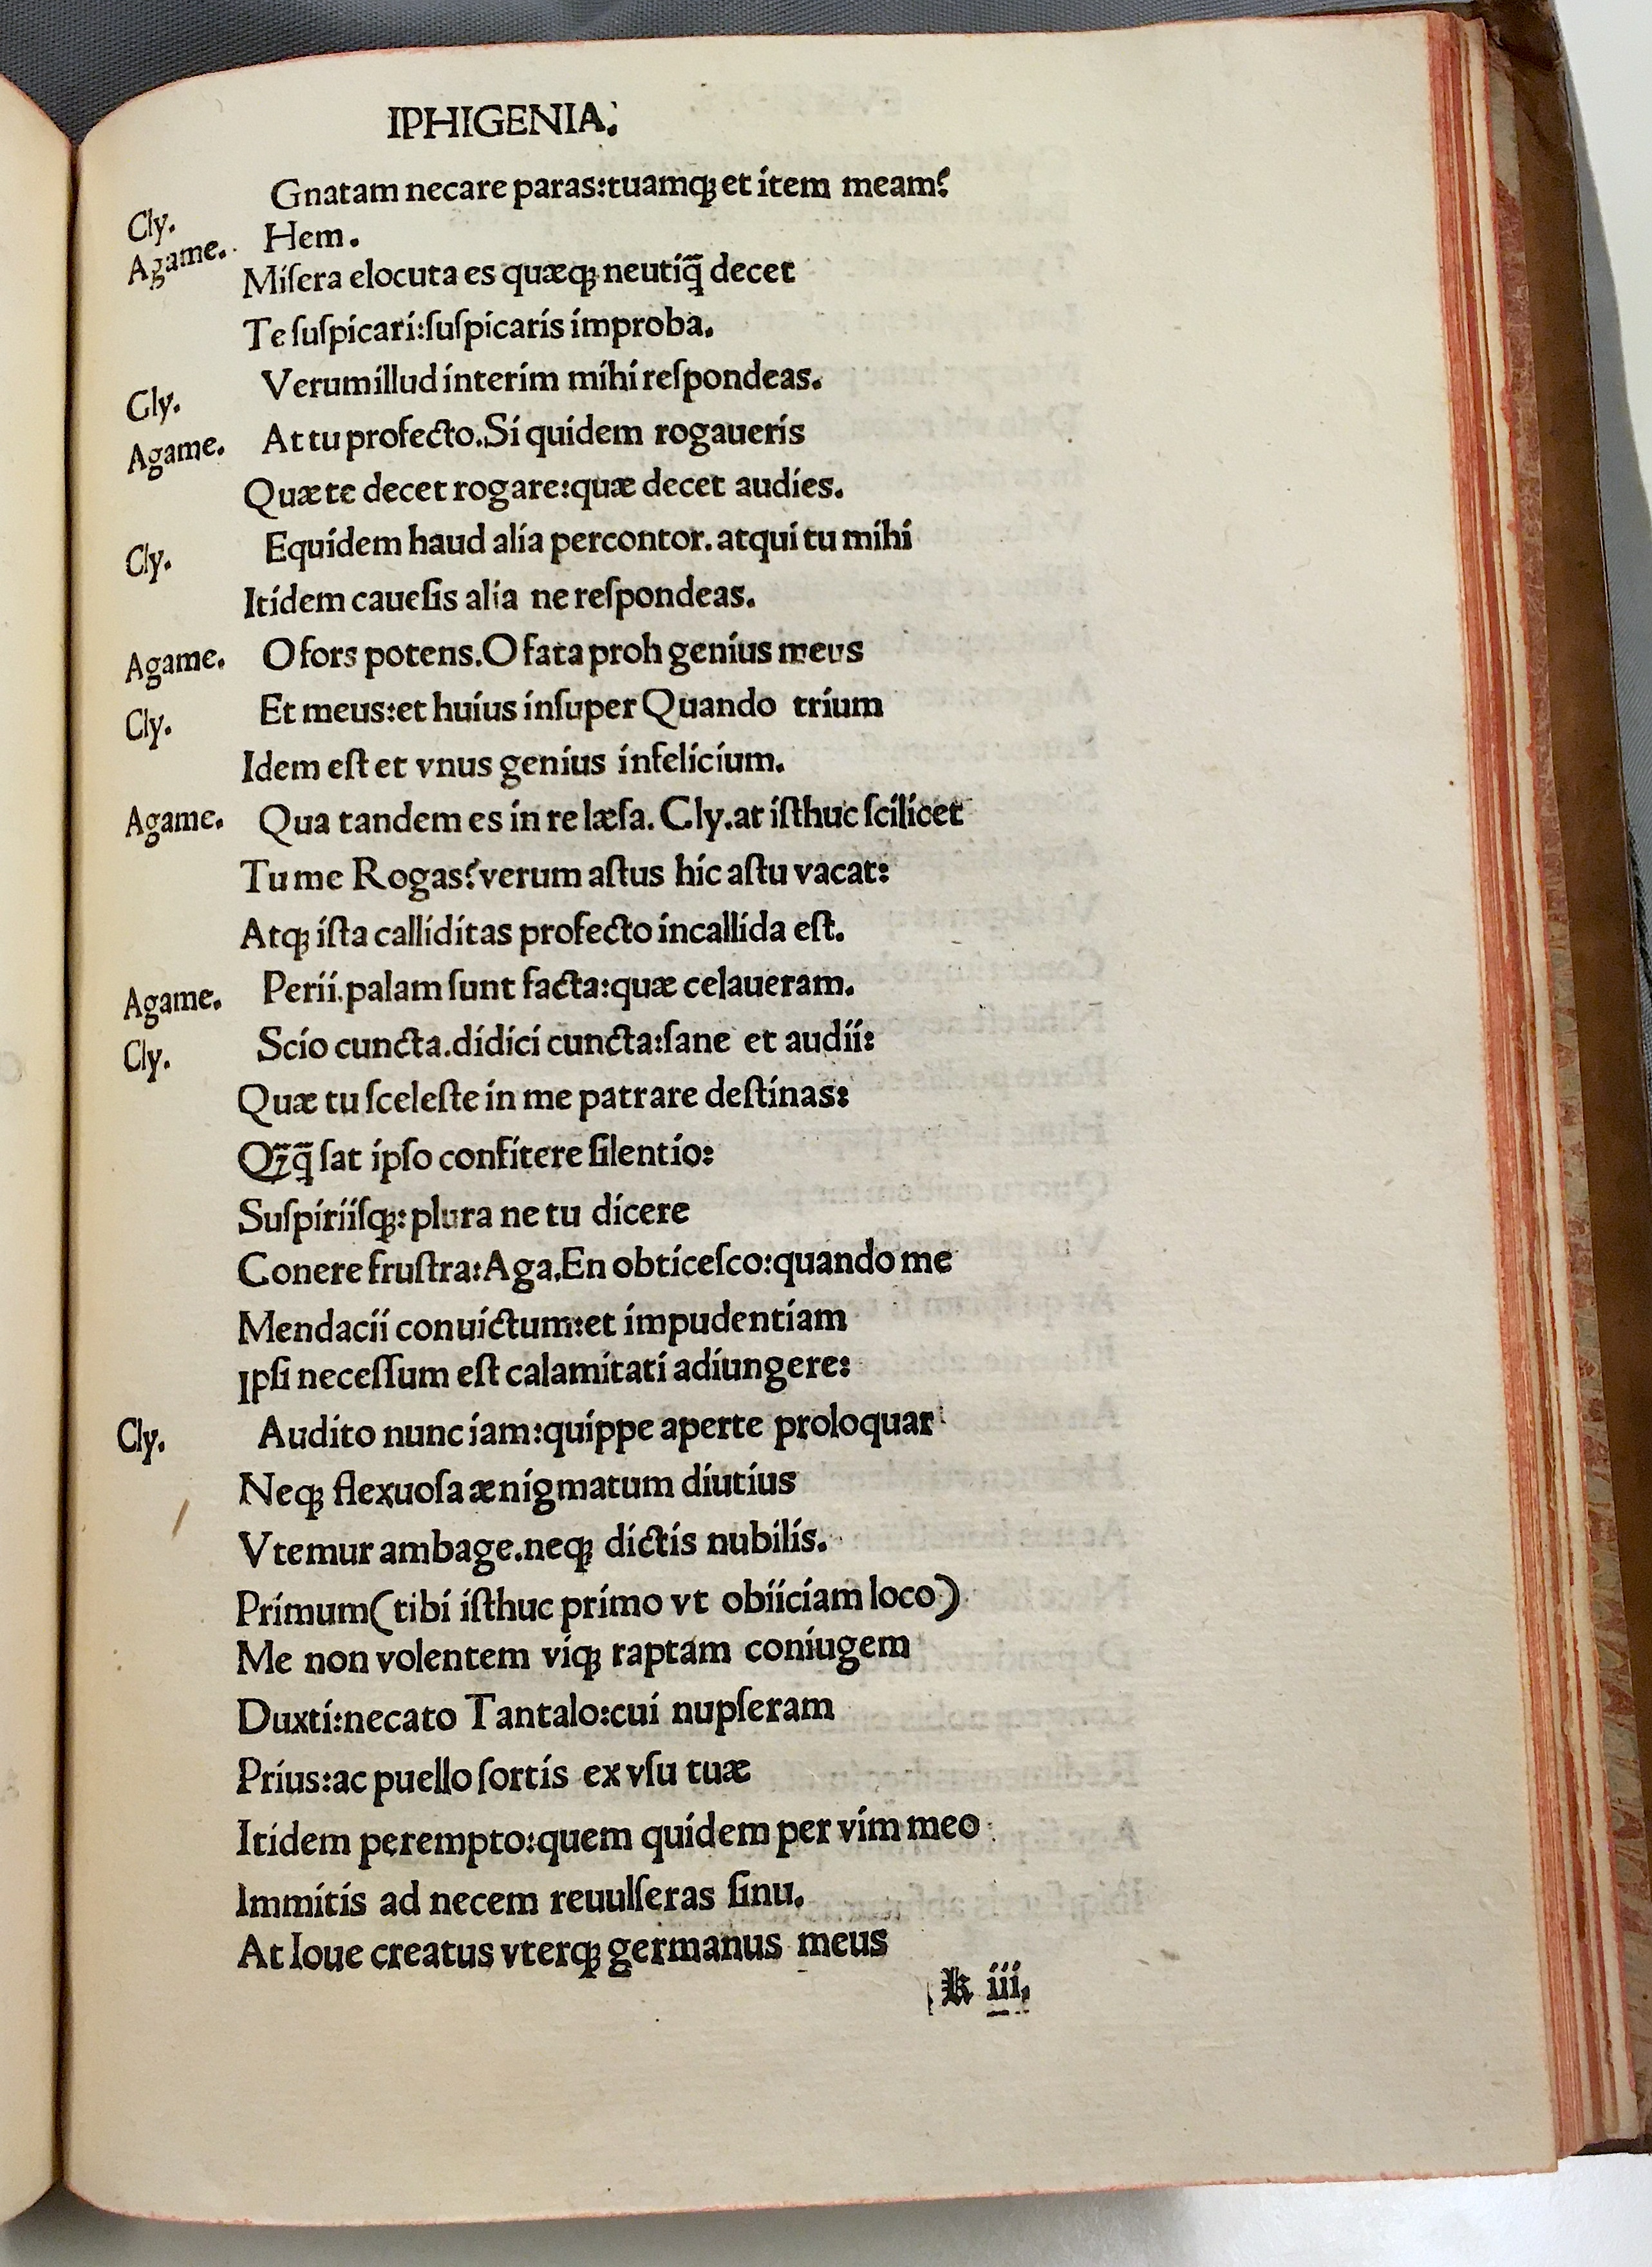 IPHIGENIA.
Gnatam necare paras:tuamqꝫ et item meam?
Cly. Hem.
Agame. Miſera elocuta es quæqꝫ neutiq̃ decet
Te ſuſpicari:ſuſpicaris improba.
Verum illud interim mihi reſpondeas.
Cly. At tu profecto.Si quidem rogaueris
Agame. Quæ te decet rogare:quæ decet audies.
Cly. Equidem haud alia percontor.atqui tu mihi
Itidem caueſis alia ne reſpondeas.
Agame. O fors potens.O fata proh genius meus
Cly. Et meus:et huius inſuper Quando trium
Idem eſt et vnus genius infelicium.
Agame. Qua tandem es in re læſa. Cly.at iſthuc ſcilicet
Tu me Rogas?verum aſtus hic aſtu vacat:
Atqꝫ iſta calliditas profecto incallida eſt.
Agame. Perii.palam ſunt facta:quæ celaueram.
Cly. Scio cuncta.didici cuncta:ſane et audii:
Quæ tu ſceleſte in me patrare deſtinas:
Qꝫ̃q̃ ſat ipſo confitere ſilentio:
Suſpiriiſqꝫ:plura ne tu dicere
Conere fruſtra:Aga.En obticeſco:quando me
Mendacii conuictum:et impudentiam
Ipſi neceſſum eſt calamitati adiungere:
Cly. Audito nunc iam:quippe aperte proloquar
Neqꝫ flexuoſa ænigmatum diutius
Vtemur ambage.neqꝫ dictis nubilis.
Primum(tibi iſthuc primo vt obiiciam loco)
Me non volentem viqꝫ raptam coniugem
Duxti:necato Tantalo:cui nupſeram
Prius:ac puello ſortis ex vſu tuæ
Itidem perempto:quem quidem per vim meo
Immitis ad necem reuulſeras ſinu.
At Ioue creatus vterqꝫ germanus meus
k iii.